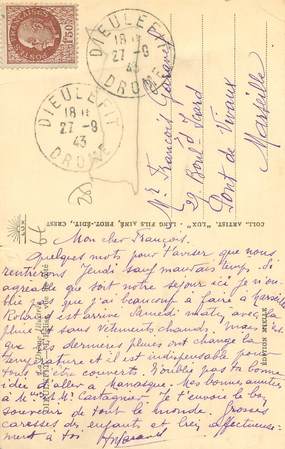 DIEULEFIT
18 H
27 - 9
43
DROME
DIEULEFIT
18 H
27 - 9
43
DROME
1F50
POSTES
Mr François
29 Boulᵈ Icard
Pont de Vivaux
Marseille
COLL. ARTIST. "LUX" - LANG FILS AINÉ, PHOT-ÉDIT., CREST
LUX
EDITION
26
Mon cher François.
Quelques mots pour t'aviser que nous
rentrerons Jeudi sauf mauvais temps. Si
agréable que soit notre séjour ici je n'ou-
blie pas que j'ai beaucoup à faire à Marseille
Roland est arrivé Samedi matin avec la
pluie et sans vêtements chauds. Mais
que ces dernières pluies ont changé la
température et il est indispensable pour
tous d'être couverts. N'oublie pas ta bonne
idée d'aller à Manosque. Mes bonnes amitiés
à Mme et Mr Castagnier. Je t'envoie le bon
souvenir de tout le monde. Grosses
caresses des enfants et bien affectueuse-
ment à toi